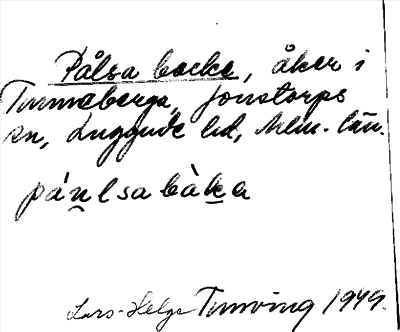 Pålsa backe, åker i
Tunneberga, Jonstorps
sn, Luggude hd, Mlm. län.
páulsabàka
Lars-Helge Tunving 1949.